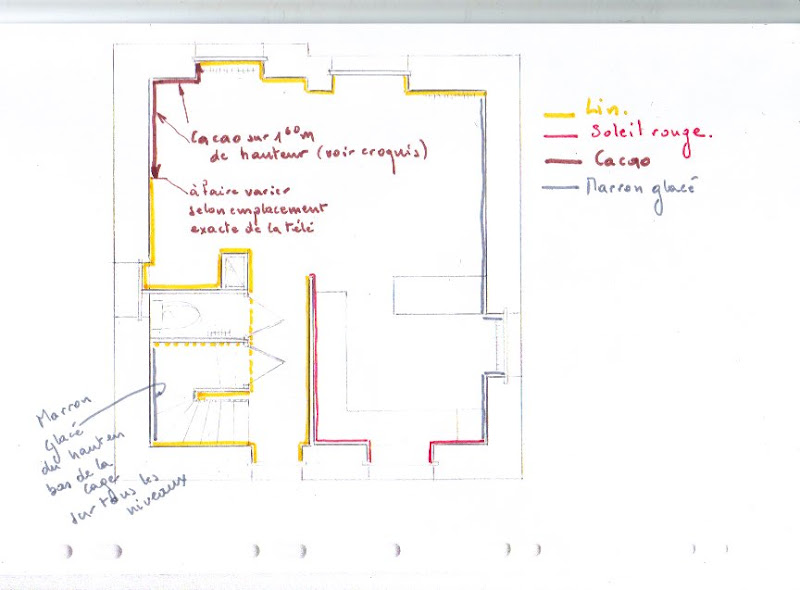 Cacao sur 1⁶⁰m
de hauteur (voir croquis)
à faire varier
selon emplacement
exacte de la télé
Lin.
Soleil rouge.
Cacao
Marron glacé
Marron
Glacé
du haut en
bas de la
cage
sur tous les
niveaux